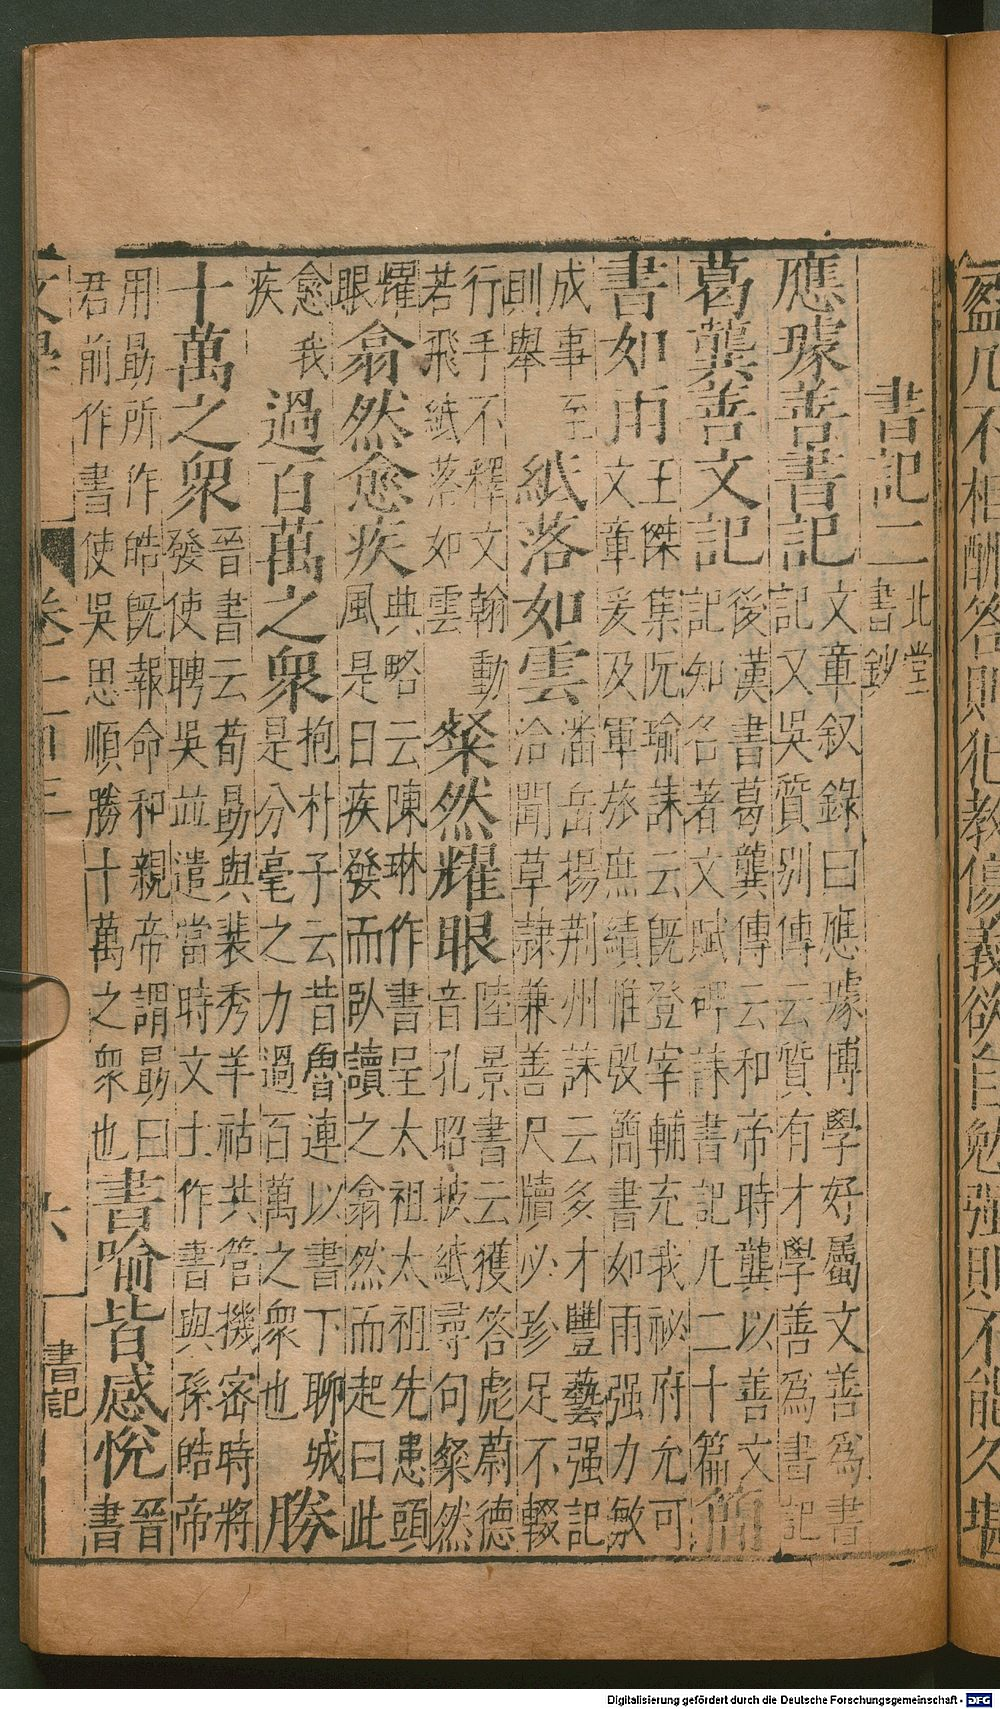 書記二 北堂書鈔
應璩善書記 文章叙錄曰應璩博學好屬文善爲書記又吳質别傳云質有才學善爲書記
葛龔善文記 後漢書葛龔傳云和帝時龔以善文記知名著文賦碑誄書記凡二十篇 簡
書如雨 王傑集阮瑀誄云旣登宰輔充我祕府允可文章爰及軍旅庶績惟殷簡書如雨强力敏
成事至則舉 紙落如雲 潘岳揚荆州誄云多才豐藝强記洽聞草隷兼善尺牘必珍足不輟
行手不釋文翰動若飛紙落如雲 粲然耀眼 陸景書云獲答彪蔚德音孔昭披紙尋句粲然
耀眼 翕然愈疾 典略云陳琳作書呈太祖太祖先患頭風是日疾發而臥讀之翕然而起曰此
愈我疾 過百萬之衆 抱朴子云昔魯連以書下聊城是分毫之力過百萬之衆也 勝
十萬之衆 晉書云荀勗與裴秀羊祜共管機密時將發使聘吳並遣當時文士作書與孫皓帝
用勗所作皓旣報命和親帝謂勗曰君前作書使吳思順勝十萬之衆也 書喻皆感悅 晉書
卷 六 書記
盈 不相酬答則犯教傷義欲自勉强則不能久堪
Digitalisierung gefördert durch die Deutsche Forschungsgemeinschaft - DFG